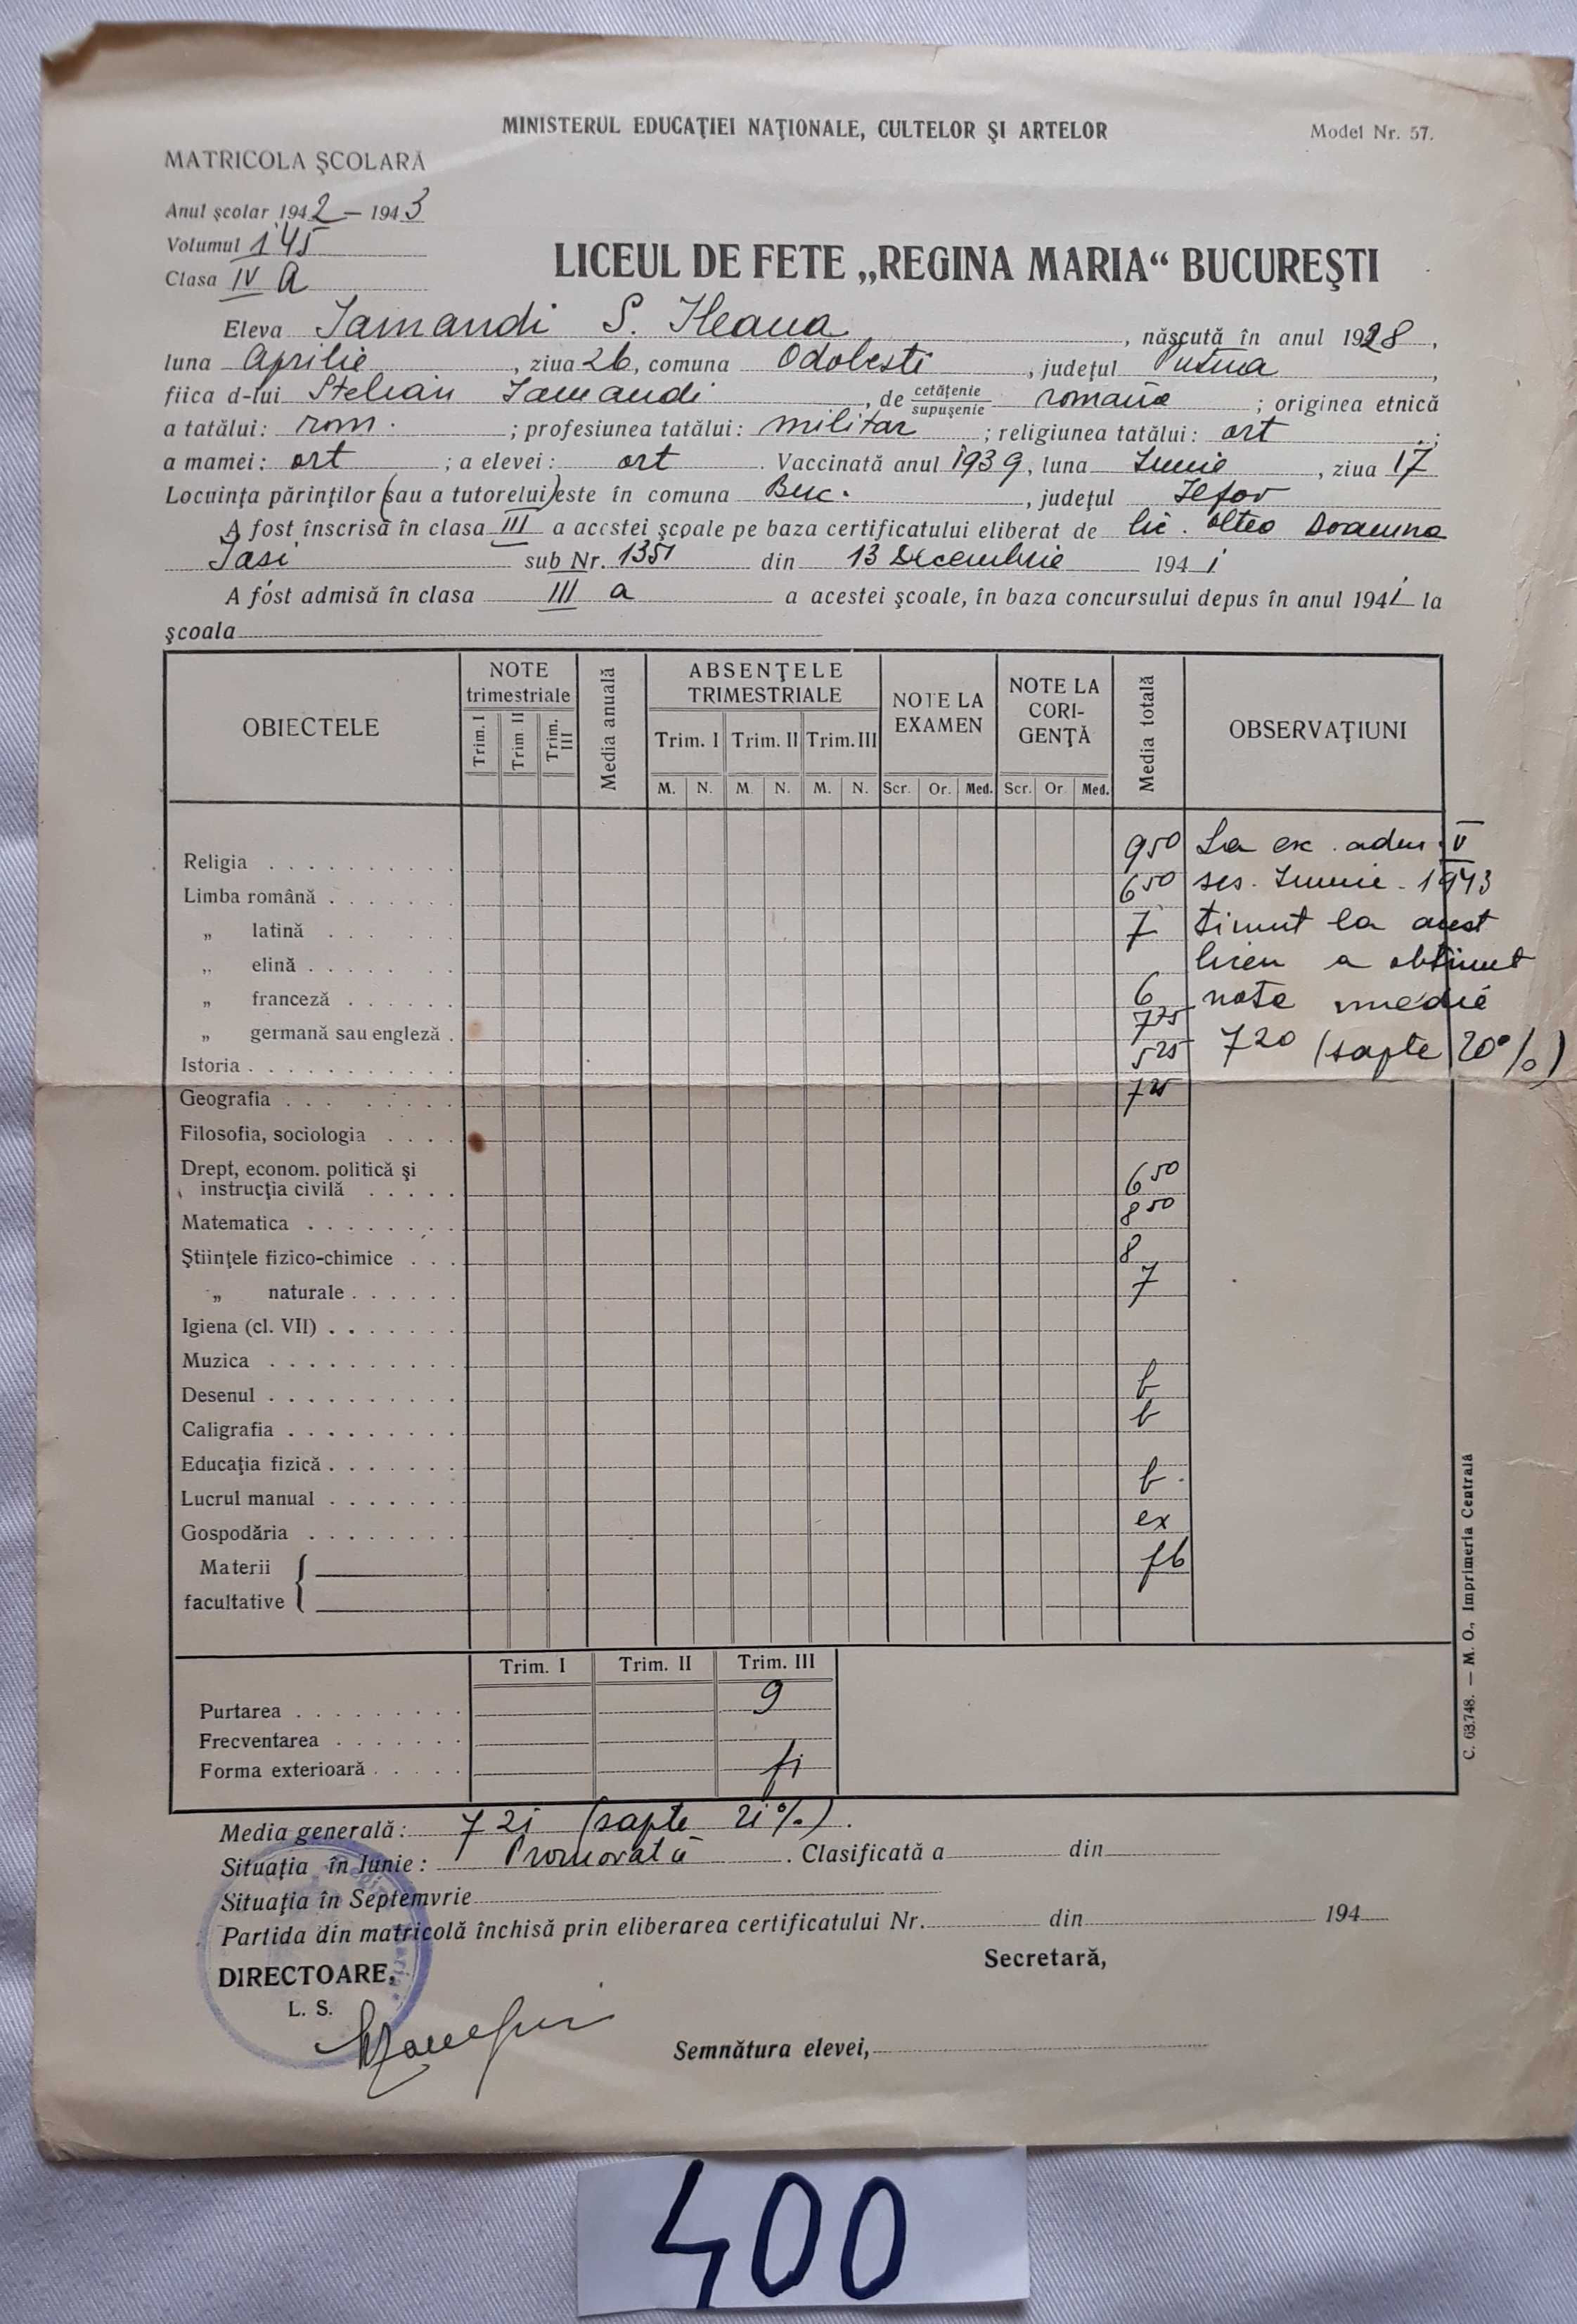 MINISTERUL EDUCAŢIEI NAŢIONALE, CULTELOR ŞI ARTELOR
Model Nr. 57.
MATRICOLA ŞCOLARĂ
Anul şcolar 1942 — 1943
Volumul 145
Clasa IV a
LICEUL DE FETE „REGINA MARIA“ BUCUREŞTI
Eleva Iamandi S. Ileana, născută în anul 1928,
luna Aprilie, ziua 26, comuna Odobesti, judeţul Putna,
fiica d-lui Stelian Iamandi, de cetăţenie supuşenie română; originea etnică
a tatălui: rom.; profesiunea tatălui: militar; religiunea tatălui: ort;
a mamei: ort; a elevei: ort. Vaccinată anul 1939, luna Iunie, ziua 17
Locuinţa părinţilor (sau a tutorelui) este în comuna Buc., judeţul Ilfov
A fost înscrisă în clasa III a acestei şcoale pe baza certificatului eliberat de lic. Oltea Doamna
Iasi sub Nr. 1351 din 13 Decembrie 1941
A fost admisă în clasa III a a acestei şcoale, în baza concursului depus în anul 1941 la
şcoala
OBIECTELE
NOTE trimestriale
Trim. I Trim. II Trim. III
Media anuală
ABSENŢELE TRIMESTRIALE
Trim. I Trim. II Trim. III
M. N. M. N. M. N.
NOTE LA EXAMEN
Scr. Or. Med.
NOTE LA CORIGENŢĂ
Scr. Or. Med.
Media totală
OBSERVAŢIUNI
Religia 9 50 La ex. adm. V
Limba română 6 50 ses. Iunie - 1943
„ latină 7 tinut la acest
„ elină liceu a obtinut
„ franceză 6 nota medie
„ germană sau engleză 7 25 7 20 (sapte 20%)
Istoria 5 25
Geografia 7 25
Filosofia, sociologia
Drept, econom. politică şi
instrucţia civilă 6 50
Matematica 8 50
Ştiinţele fizico-chimice 8
„ naturale 7
Igiena (cl. VII)
Muzica
Desenul b
Caligrafia b
Educaţia fizică
Lucrul manual b
Gospodăria ex
Materii fb
facultative
Trim. I Trim. II Trim. III
Purtarea 9
Frecventarea
Forma exterioară
C. 63.748. — M. O., Imprimeria Centrală
Media generală: 7 21 (sapte 21%).
Situaţia în Iunie: Promovată. Clasificată a din
Situaţia în Septemvrie
Partida din matricolă închisă prin eliberarea certificatului Nr. din 194
DIRECTOARE,
Secretară,
L. S.
Semnătura elevei,
400